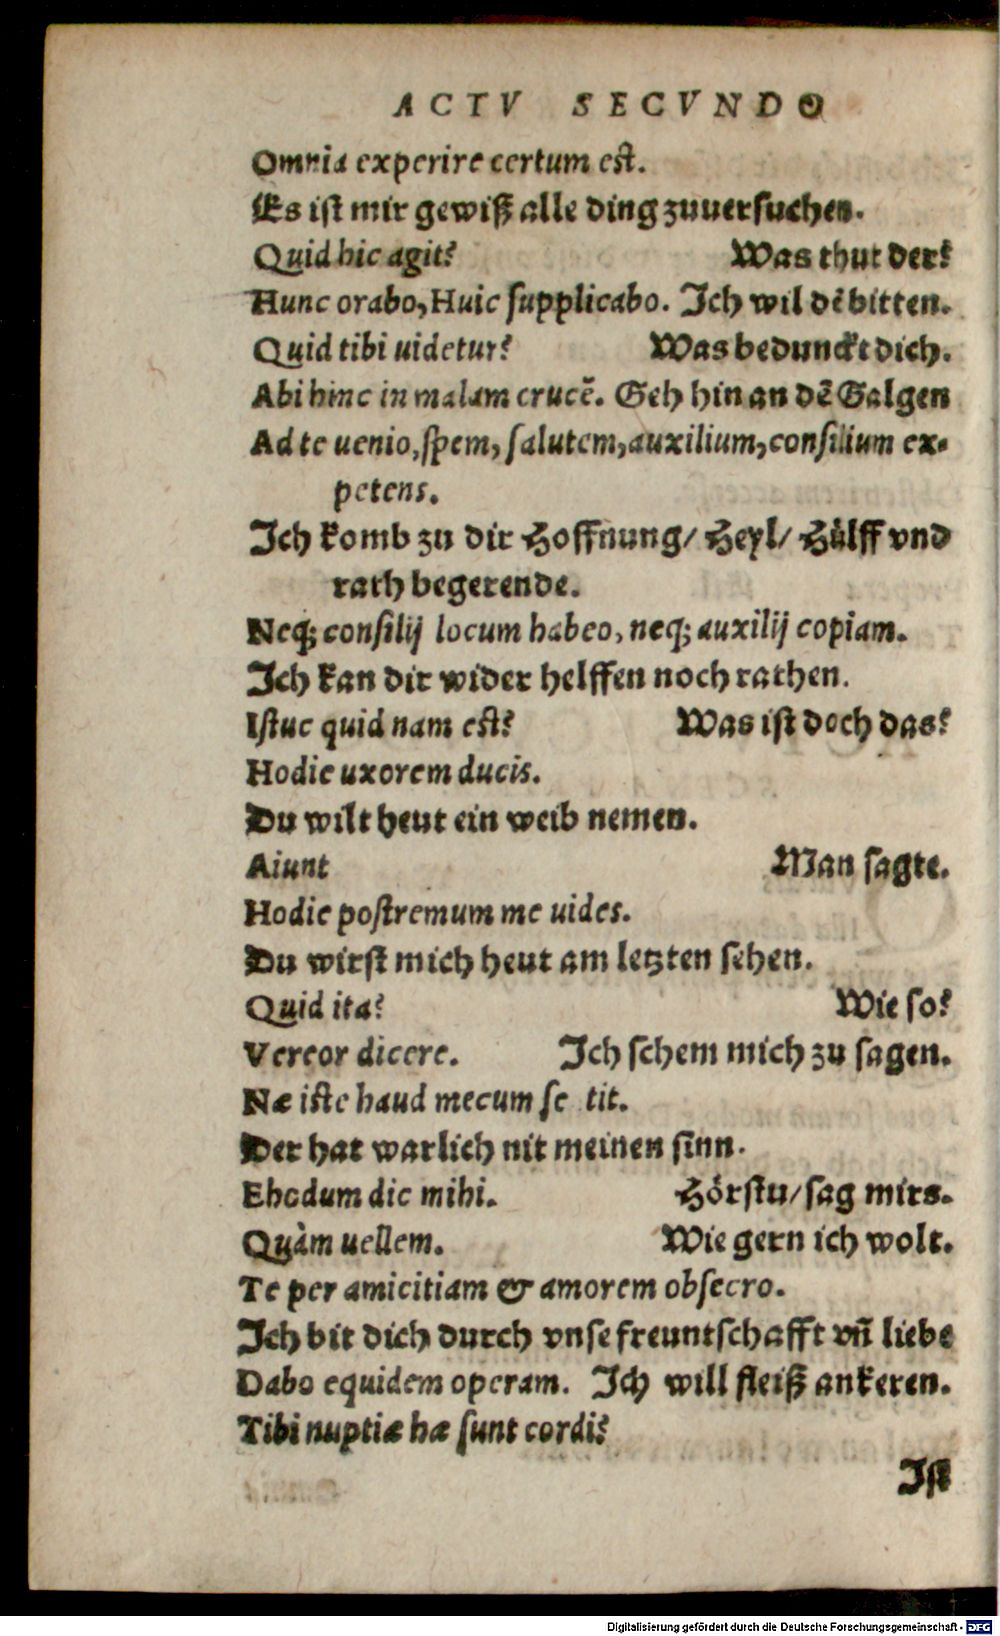 ACTV SECVNDO
Omnia experire certum est.
Es ist mir gewiß alle ding zuuersuchen.
Quid hic agit? Was thut der?
Hunc orabo, Huic supplicabo. Ich wil dē bitten.
Quid tibi uidetur? Was bedunckt dich.
Abi hinc in malam crucē. Geh hin an dē Galgen
Ad te uenio, spem, salutem, auxilium, consilium ex-
petens.
Ich komb zu dir Hoffnung/ Heyl/ Hülff vnd
rath begerende.
Neq; consilij locum habeo, neq; auxilij copiam.
Ich kan dir wider helffen noch rathen.
Istuc quid nam est? Was ist doch das?
Hodie uxorem ducis.
Du wilt heut ein weib nemen.
Aiunt Man sagte.
Hodie postremum me uides.
Du wirst mich heut am letzten sehen.
Quid ita? Wie so?
Vereor dicere. Ich schem mich zu sagen.
Næ iste haud mecum se tit.
Der hat warlich nit meinen sinn.
Ehodum dic mihi. Hörstu/ sag mirs.
Quàm uellem. Wie gern ich wolt.
Te per amicitiam & amorem obsecro.
Ich bit dich durch vnse freuntschafft vñ liebe
Dabo equidem operam. Ich will fleiß ankeren.
Tibi nuptiæ hæ sunt cordi?
Ist
Digitalisierung gefördert durch die Deutsche Forschungsgemeinschaft - DFG